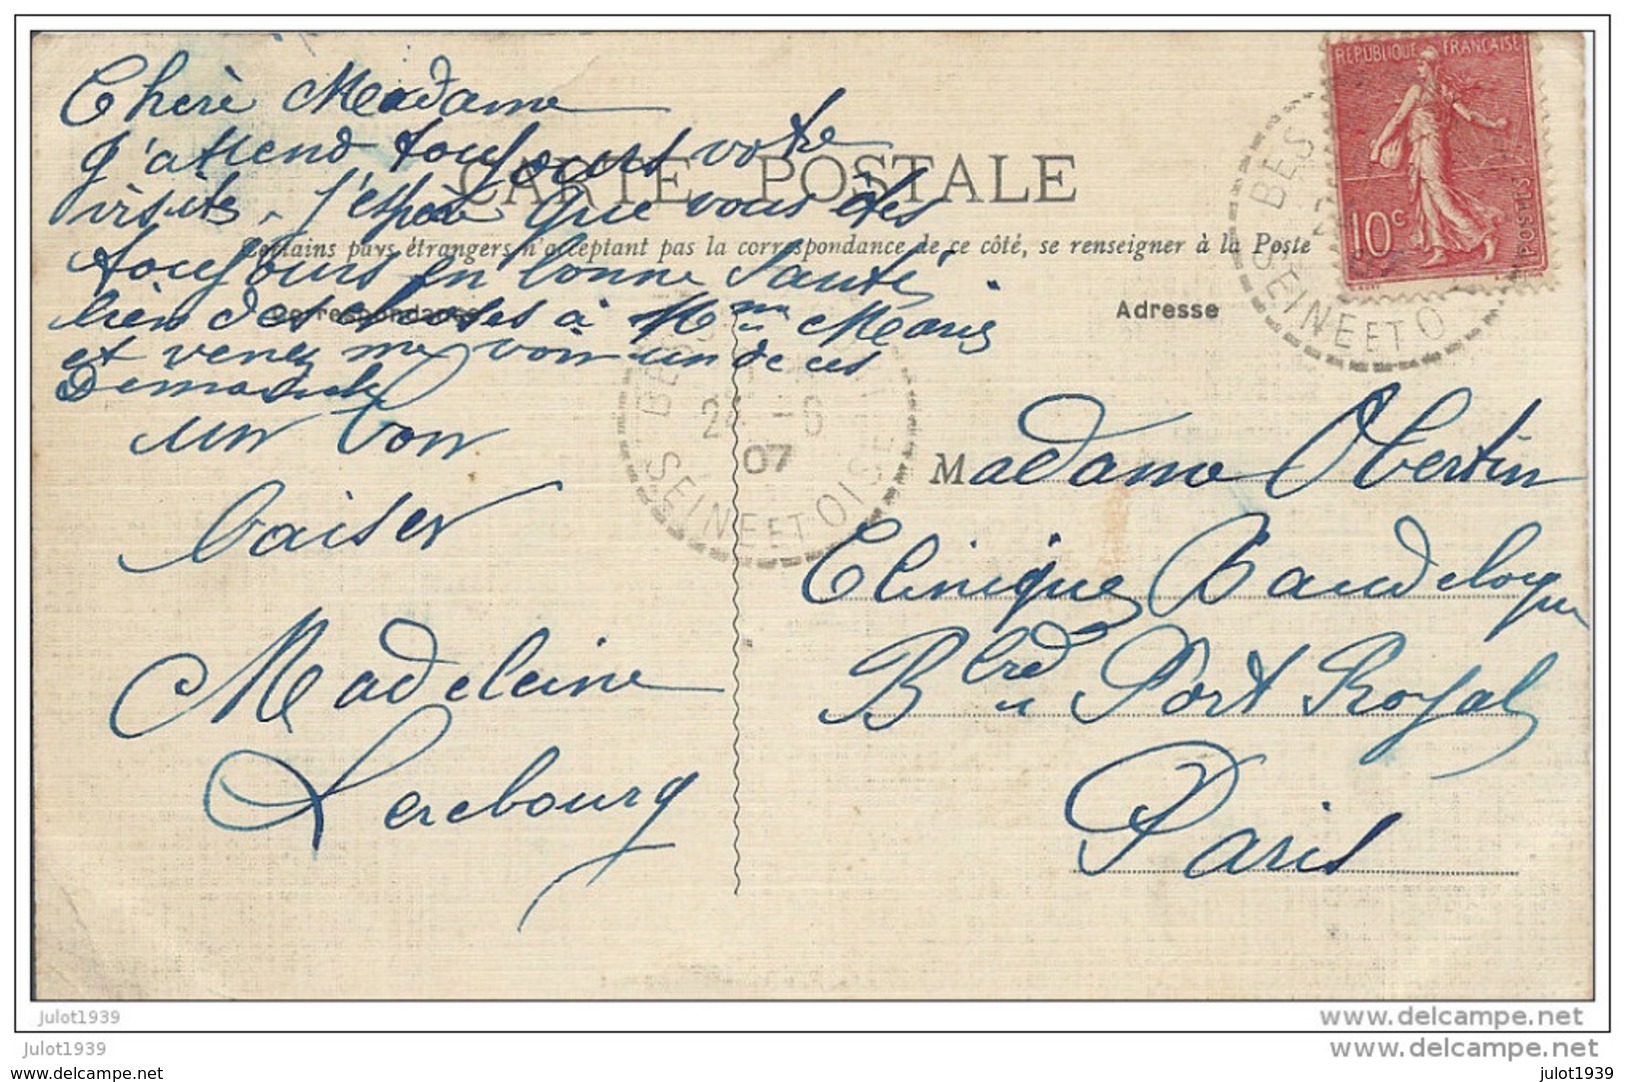 Chère Madame
J'attend toujours votre
visite. J'espère que vous êtes
toujours en bonne santé
bien des choses à Mme Marie
et venez me voir un de ces
Dimanche
un bon
baiser
Madeleine
Lerebourg
CARTE POSTALE
Certains pays étrangers n'acceptant pas la correspondance de ce côté, se renseigner à la Poste
Correspondance
Adresse
REPUBLIQUE FRANÇAISE
10c
POSTES
BES
SEINE ET O
24 -6
07
SEINE ET OISE
Madame Obertin
Clinique Baudelocque
Blred Port Royal
Paris
julot1939
www.delcampe.net
julot1939
www.delcampe.net
www.delcampe.net
julot1939